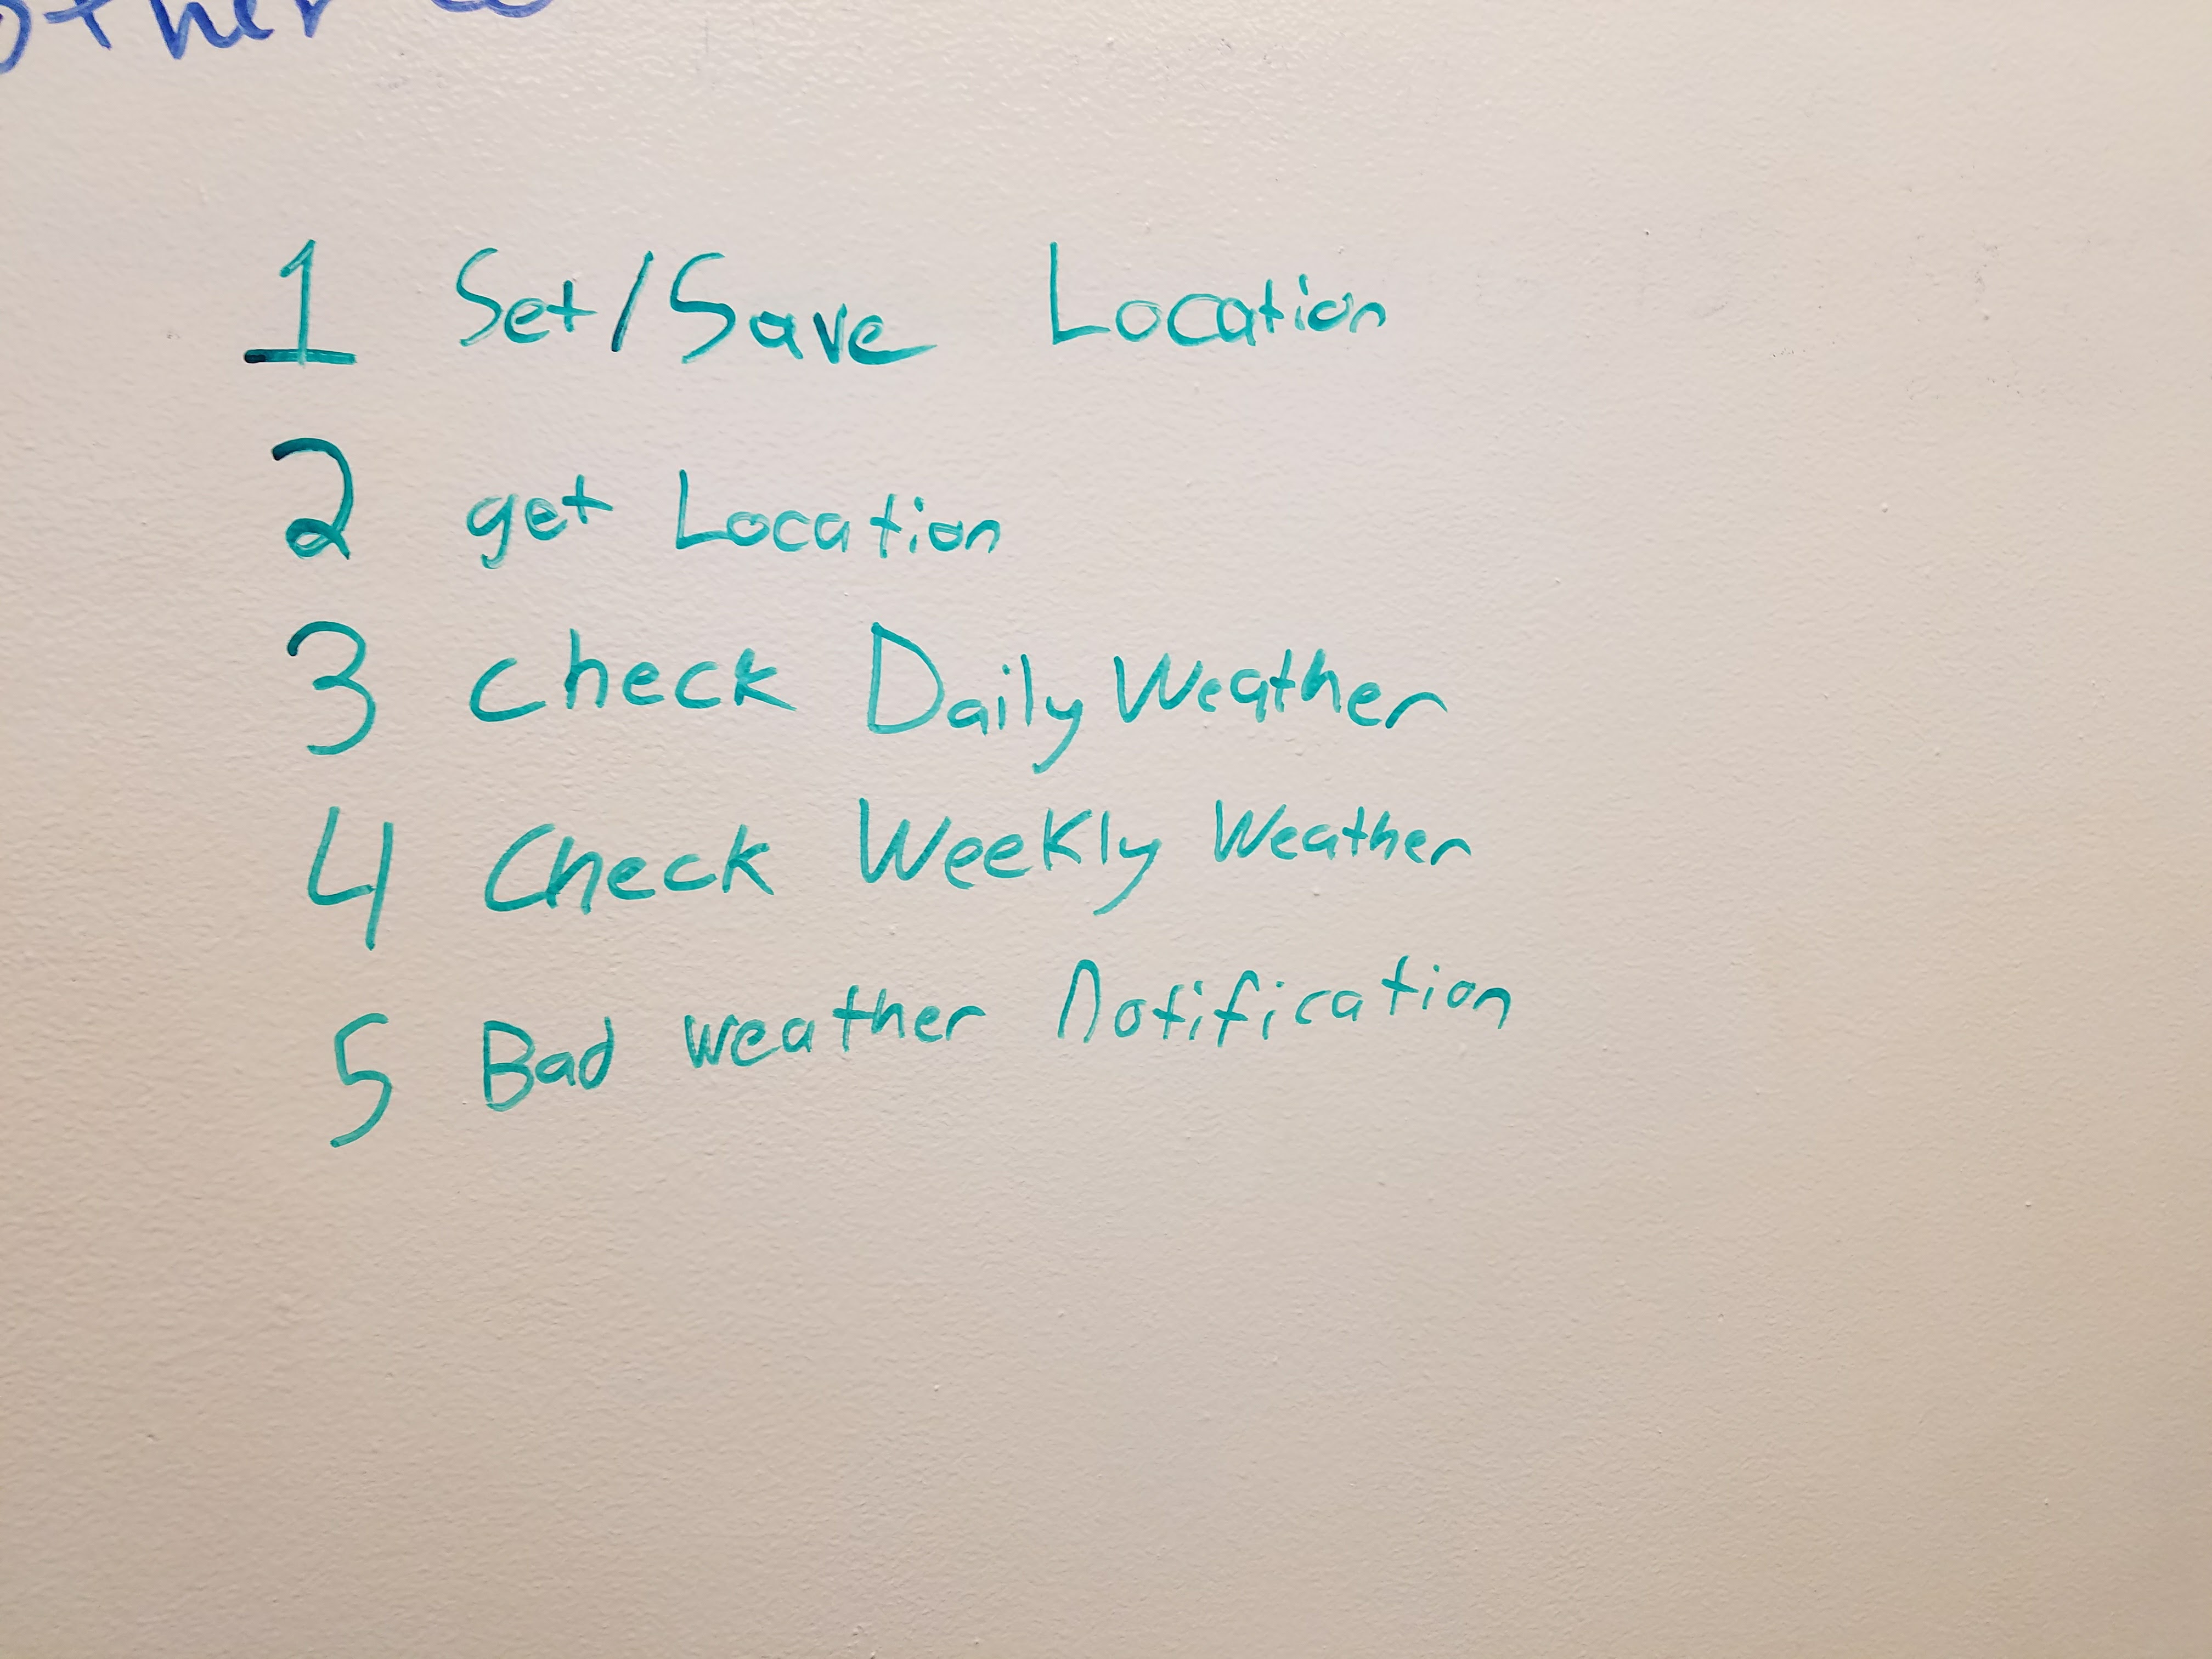 other
1 Set/Save Location
2 get Location
3 check Daily Weather
4 Check Weekly Weather
5 Bad weather Notification